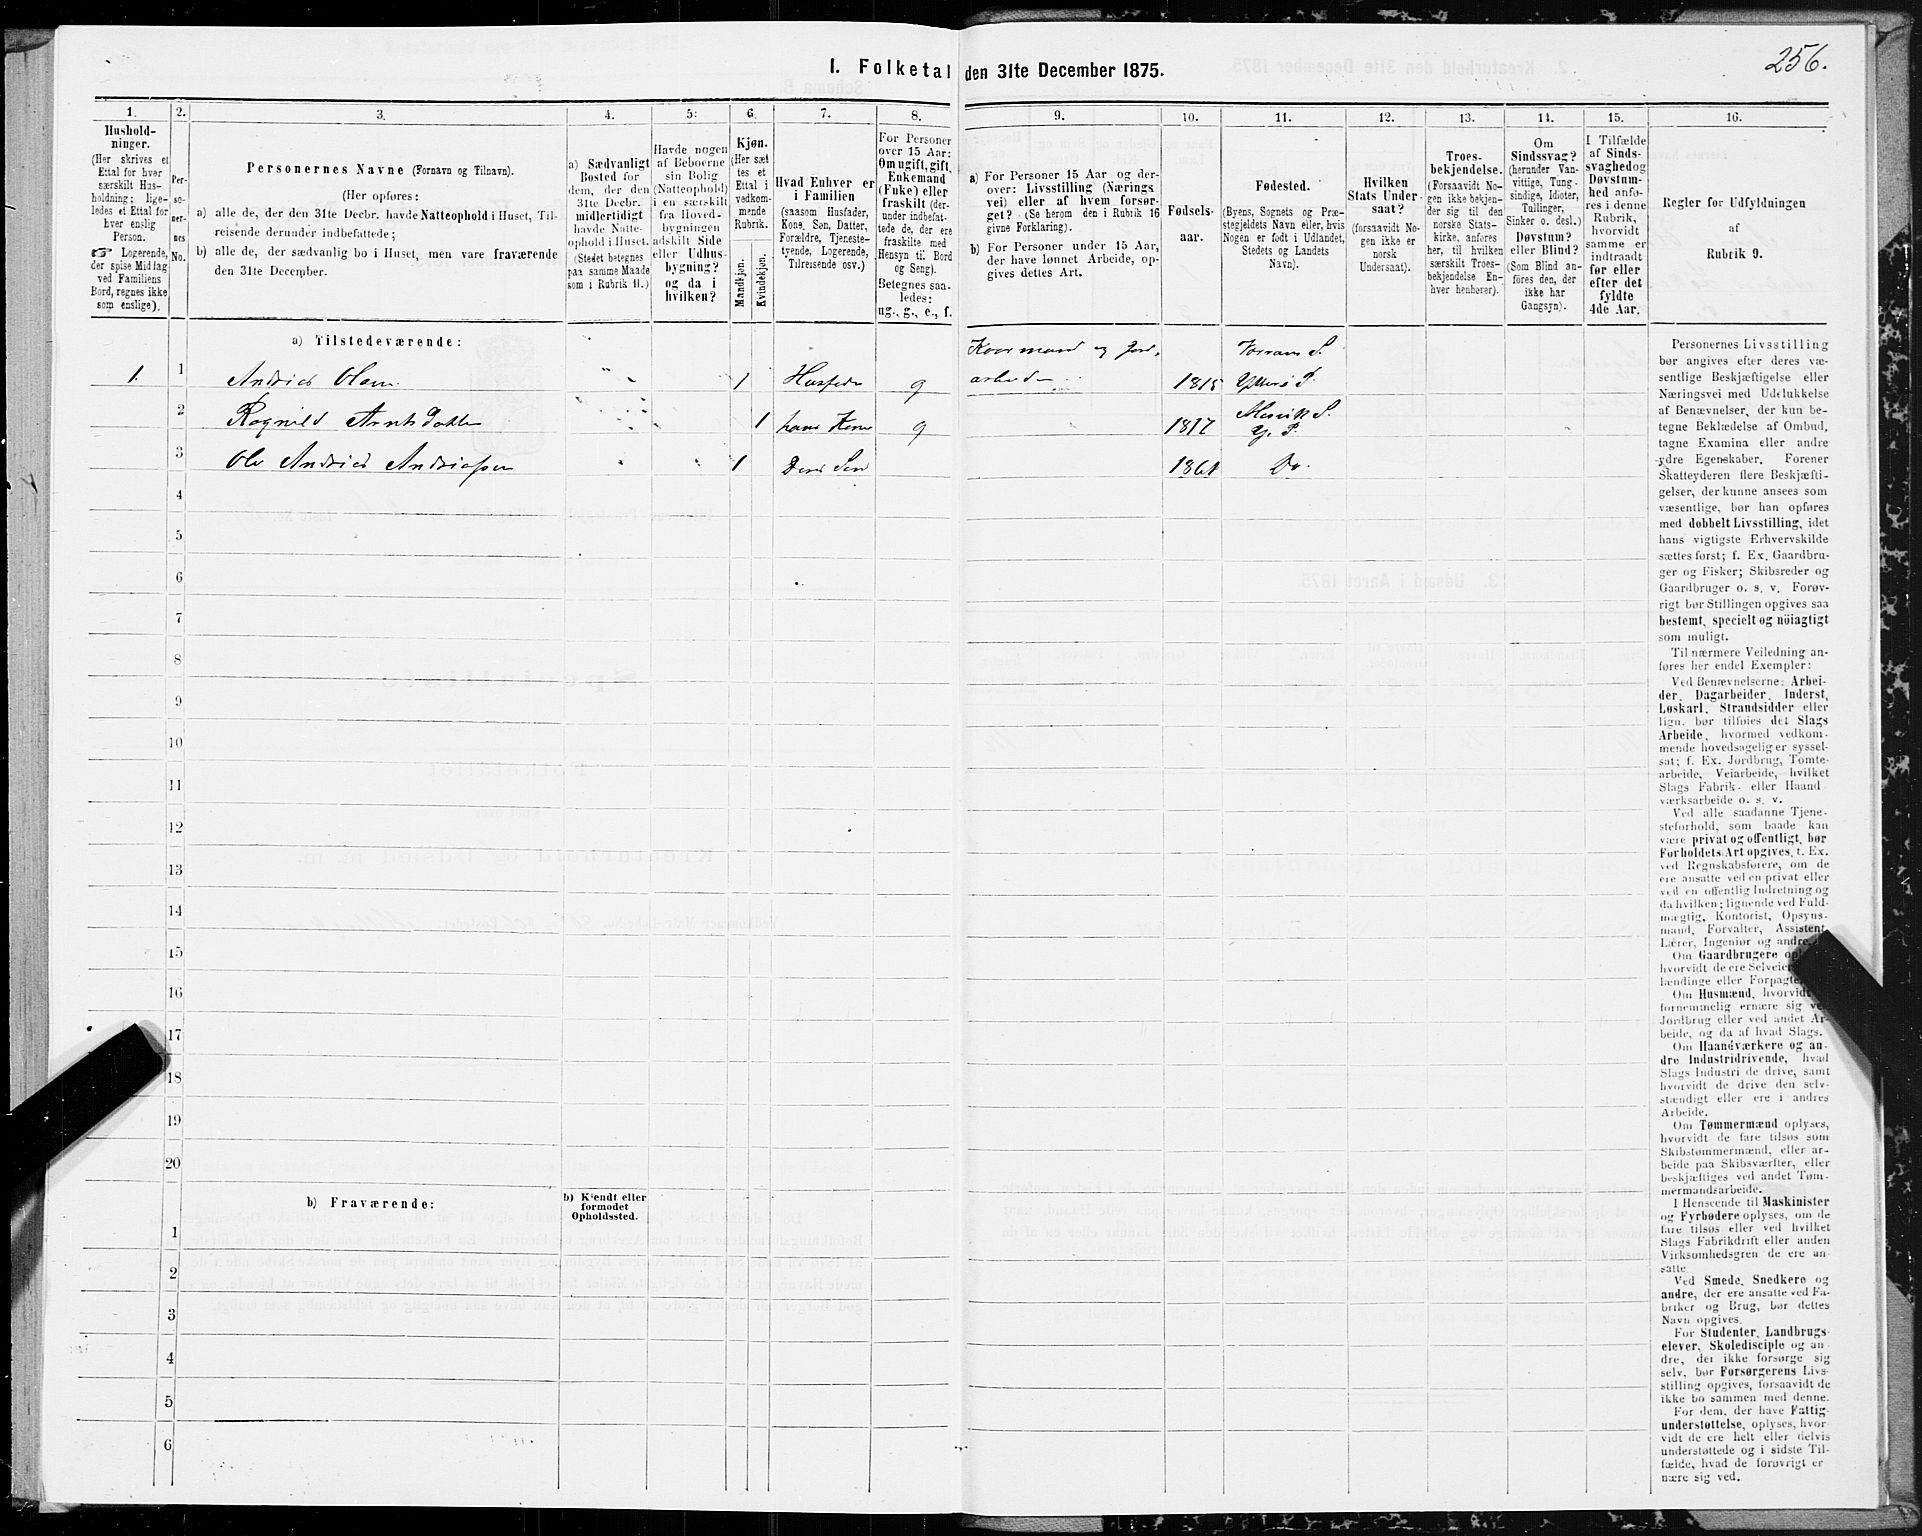 256.
I. Folketal den 31te December 1875.
1. 2. 3. 4. 5. 6. 7. 8. 9. 10. 11. 12. 13. 14. 15. 16.
Hushold-
ninger.
(Her skrives et
Ettal for hver
særskilt Hus-
holdning; lige-
ledes et Ettal for
hver enslig
Person.
☞ Logerende,
der spise Middag
ved Familiens
Bord, regnes ikke
som enslige).
Per-
so-
ner-
nes
No.
Personernes Navne (Fornavn og Tilnavn).
(Her opføres:
a) alle de, der den 31te Decbr. havde Natteophold i Huset, Til-
reisende derunder indbefattede;
b) alle de, der sædvanlig bo i Huset, men vare fraværende
den 31te December.
a) Sædvanligt
Bosted for
dem, der den
31te Decbr.
midlertidigt
havde Natte-
ophold i Huset.
(Stedet betegnes
paa samme Maade
som i Rubrik 11.)
Havde nogen
af Beboerne
sin Bolig
(Natteophold)
i en særskilt
fra Hoved-
bygningen
adskilt Side
eller Udhus-
bygning?
og da i
hvilken?
Kjøn.
(Her sæt
tes et
Ettal i
vedkom-
mende
Rubrik.
Mandkjøn.
Kvindekjøn.
Hvad Enhver er
i Familien
(saasom Husfader,
Kone, Søn, Datter,
Forældre, Tjeneste-
tyende, Logerende,
Tilreisende osv.)
For Personer
over 15 Aar:
Om ugift, gift,
Enkemand
(Enke) eller
fraskilt (der-
under indbefat-
tede de, der ere
fraskilte med
Hensyn til Bord
og Seng).
Betegnes saa-
ledes:
ug., g., e., f.
a) For Personer 15 Aar og der-
over: Livsstilling (Nærings
vei) eller af hvem forsør-
get? (Se herom den i Rubrik 16
givne Forklaring).
b) For Personer under 15 Aar,
der have lønnet Arbeide, op-
gives dettes Art.
Fødsels-
aar.
Fødested.
(Byens, Sognets og Præ-
stegjeldets Navn eller, hvis
Nogen er født i Udlandet,
Stedets og Landets
Navn).
Hvilken
Stats Under-
saat?
(forsaavidt No-
gen ikke er
norsk
Undersaat).
Troes-
bekjendelse.
(Forsaavidt No-
gen ikke bekjen-
der sig til den
norske Stats-
kirke, anføres
her, til hvilken
særskilt Troes-
bekjendelse En-
hver henhører).
Om
Sindssvag?
(herunder Van-
vittige, Tung-
sindige, Idioter,
Tullinger,
Sinker o. desl.)
Døvstum?
eller Blind?
(Som Blind an-
føres den, der
ikke har
Gangsyn).
I Tilfælde
af Sinds-
svaghed og
Døvstum-
hed anfø-
res i denne
Rubrik,
hvorvidt
samme er
indtraadt
før eller
efter det
fyldte
4de Aar.
Regler for Udfyldningen
af
Rubrik 9.
a) Tilstedeværende:
1. 1 Andrias Olsen 1 Husfader g arbeider 1815 Ytterø P.
2 Ragnild Arntsdatter 1 hans Kone g 1817 Y. P.
3 Ole Andrias Andriassen 1 Deres Søn 1861 Do.
4
5
6
7
8
9
10
11
12
13
14
15
16
17
18
19
20
b) Fraværende:
b) Kjendt eller
formodet
Opholdssted.
1
2
3
4
5
6
Personernes Livsstilling
bør angives efter deres væ-
sentlige Beskjæftigelse eller
Næringsvei med Udelukkelse
af Benævnelser, der kun be-
tegne Beklædelse af Ombud,
tagne Examina eller andre
ydre Egenskaber. Forener
Skatteyderen flere Beskjæfti-
gelser, der kunne ansees som
væsentlige, bør han opføres
med dobbelt Livsstilling, idet
hans vigtigste Erhvervskilde
sættes først; f. Ex. Gaardbru-
ger og Fisker; Skibsreder og
Gaardbruger o. s. v. Forøv-
rigt bør Stillingen opgives saa
bestemt, specielt og nöiagtigt
som muligt.
Til nærmere Veiledning an-
føres her endel Exempler:
Ved Benævnelserne: Arbei-
der, Dagarbeider, Inderst,
Løskarl, Strandsidder eller
lign. bør tilføies det Slags
Arbeide, hvormed vedkom-
mende hovedsagelig er syssel-
sat; f. Ex. Jordbrug, Tomte-
arbeide, Veiarbeide, hvilket
Slags Fabrik- eller Haand
værksarbeide o. s. v.
Ved alle saadanne Tjene-
steforhold, som baade kan
være privat og offentligt, bør
Forholdets Art opgives, t. Ex.
ved Regnskabsførere, om de
ere ansatte ved en privat eller
ved en offentlig Indretning og
da hvilken; lignende ved Fuld-
mægtig, Kontorist, Opsyns-
mand, Forvalter, Assistent,
Lærer, Ingeniør og andre.
Om Gaardbrugere
hvorvidt de ere Selveiere
lændinge eller Forpagtere
Om Husmænd, hvorvidt
fornemmelig ernære sig ved
Jordbrug eller ved andet Ar-
beide, og da af hvad Slags.
Om Haandværkere og an-
dre Industridrivende, hvad
Slags Industri de drive, samt
hvorvidt de drive den selv-
stændigt eller ere i andres
Arbeide.
Om Tømmermænd oplyses,
hvorvidt de fare tilsøs som
Skibstømmermænd, eller ar-
beide paa Skibsværfter, eller
beskjæftiges ved andet Tøm-
mermandsarbeide.
I Henseende til Maskinister
og Fyrbødere oplyses, om de
fare tilsøs eller ved hvilket
Slags Fabrikdrift eller anden
Virksomhedsgren de ere an-
satte.
Ved Smede, Snedkere og
andre, der ere ansatte ved Fa-
briker og Brug, bør dettes
Navn opgives.
For Studenter, Landbrugs-
elever, Skoledisciple og an
dre, der ikke forsørge sig
selv, bør Forsørgerens Livs-
stilling opgives, forsaavidt de
ikke bo sammen med denne.
For dem, der have Fattig-
understøttelse, oplyses, hvor-
vidt de ere helt eller delvis
understøttede og i sidste Til-
fælde, hvad de forøvrigt er
nære sig ved.